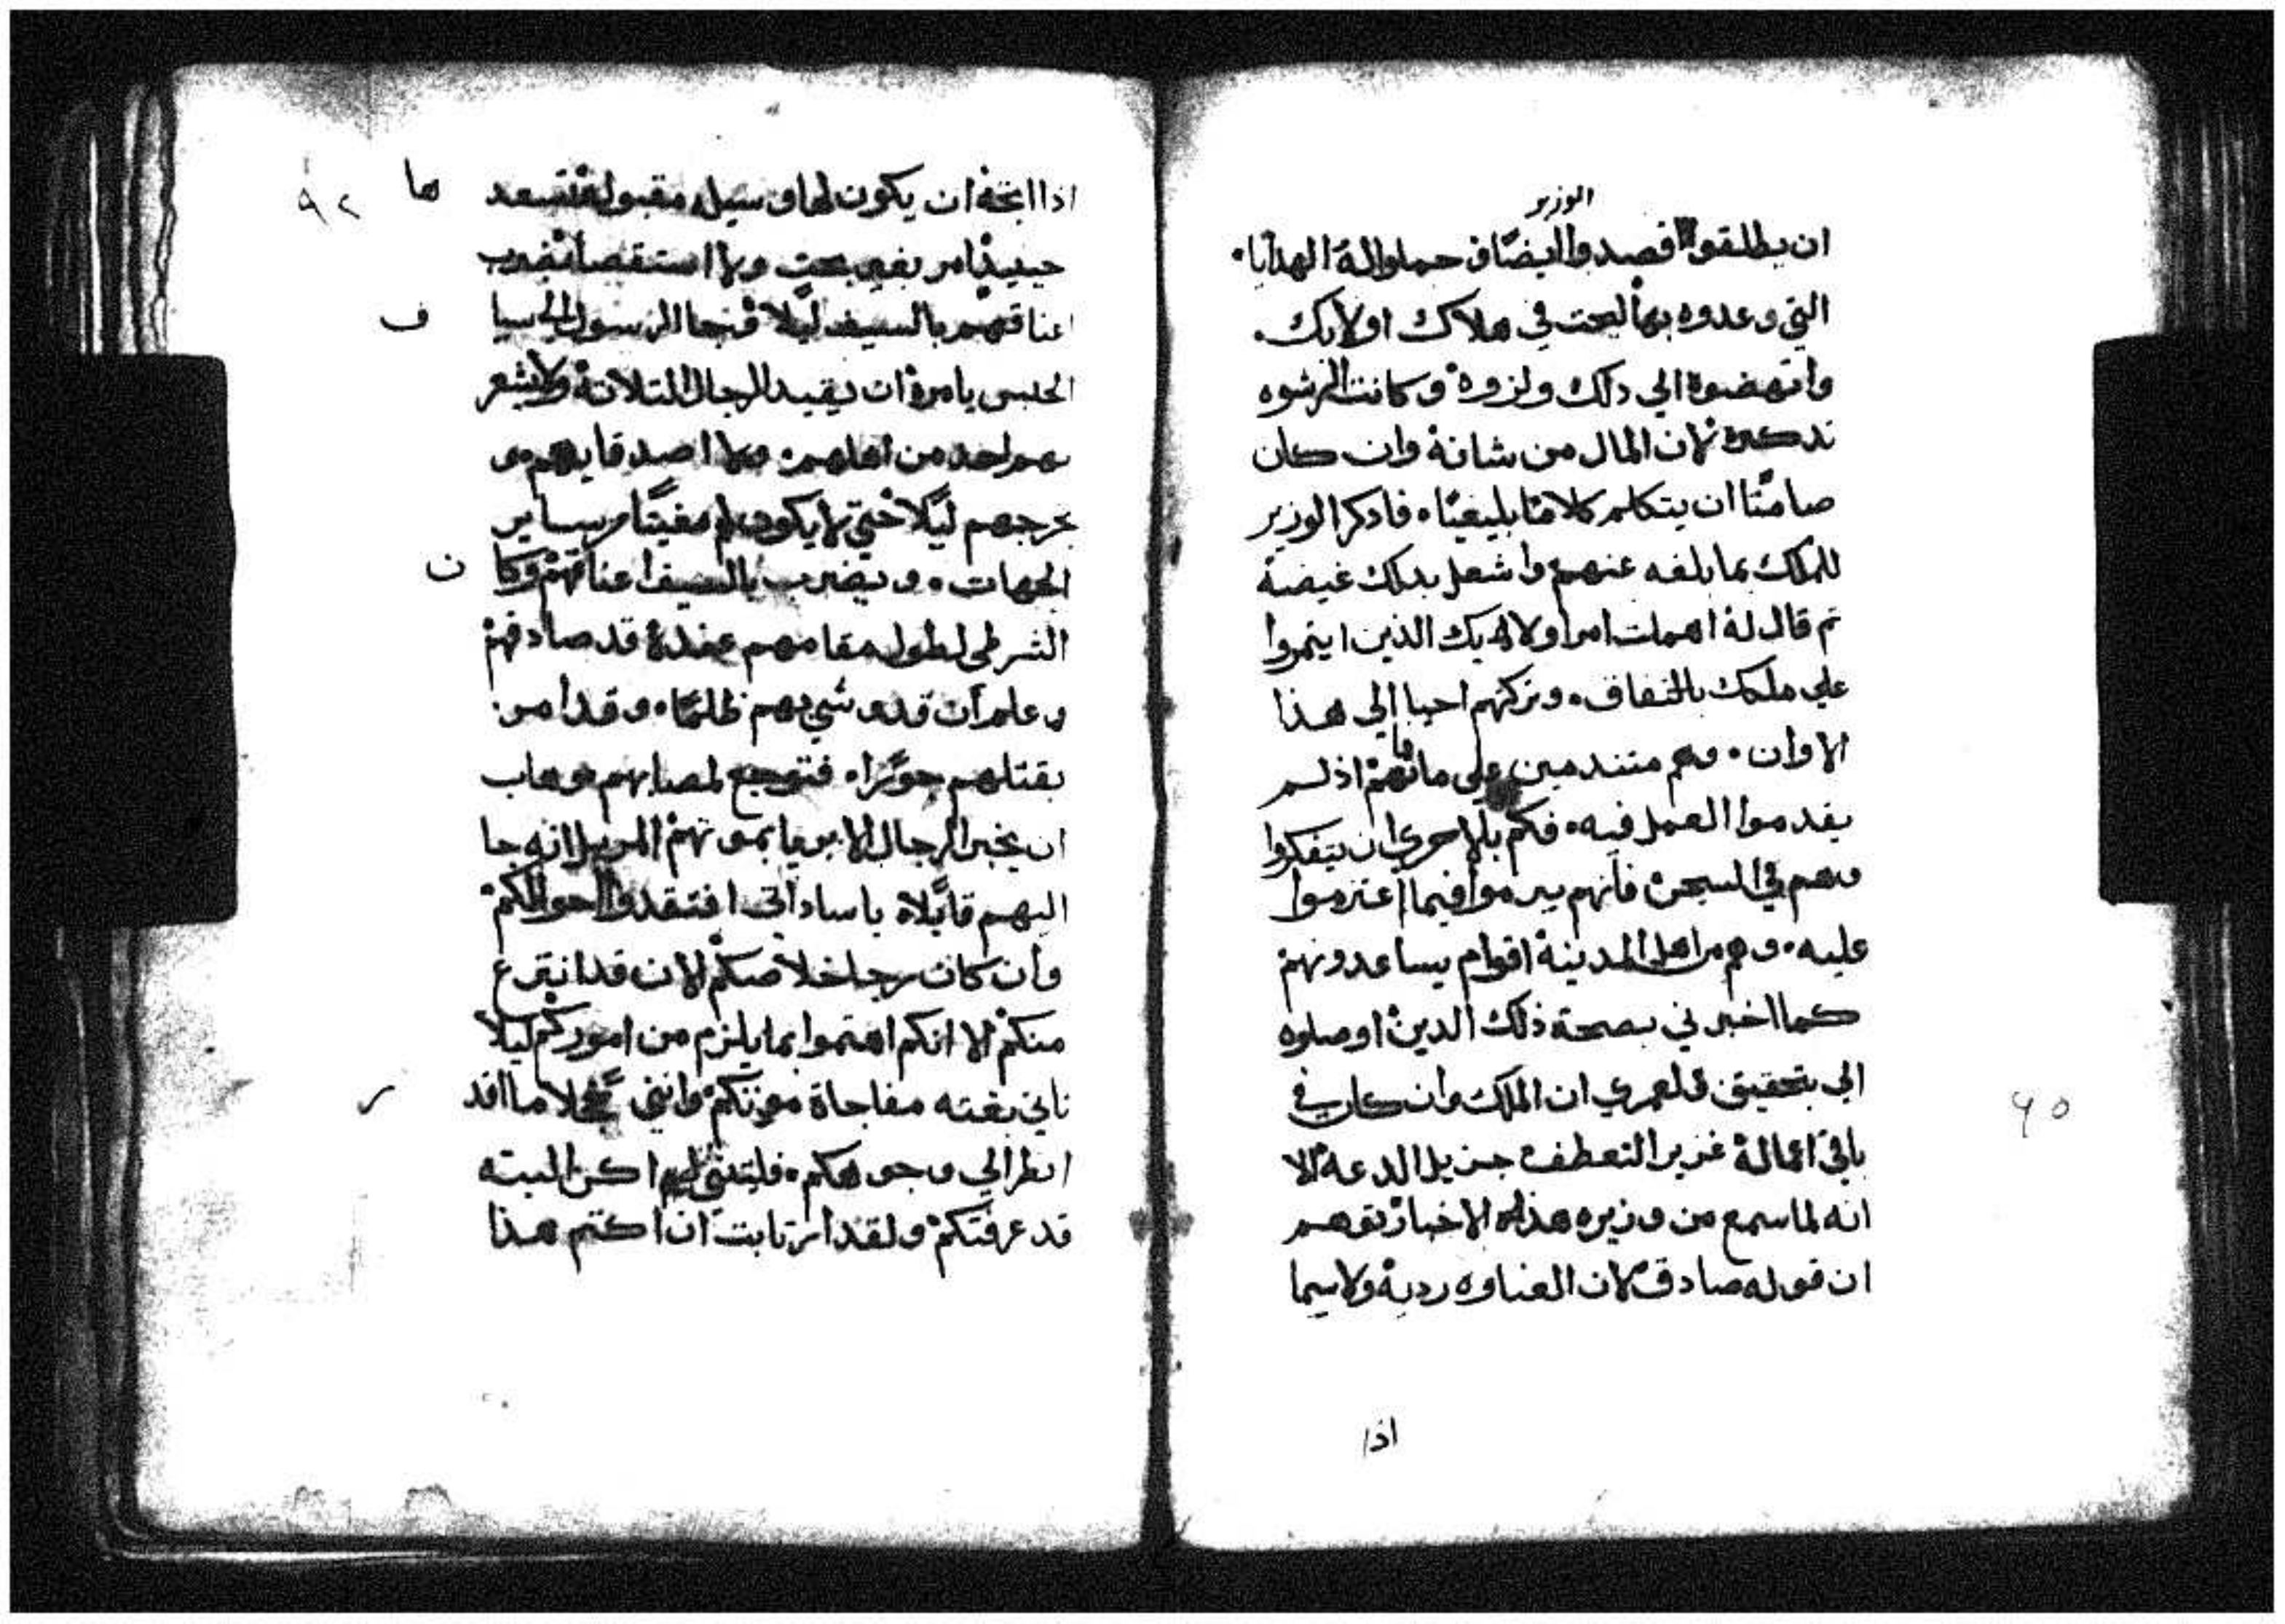 الوزير
ان يطلقوا فصدوا ايضًا في حملوا لة الهدايا.
التي وعدوه بها ليحت في هلاك اولايك.
وانهضوة الي دلك ولزوه وكانت الرشوه
تدكره لان المال من شانة وان كان
صامتًا ان يتكلم كلامًا بليغيًا. فادكر الوزير
للملك بما بلغه عنهم واشعل بدلك غيضة
تم قال لة اهملت امر اولايك الذين ايتمروا
علي ملكك بالنفاق. وتركتهم احيا الي هذا
الاوان. وهم متندمين علي ما فاتهم اذ لم
يقدموا العمل فيه. فكم بالاحري ان يتفكروا
وهم في السجن فانهم يبرموا فيما اعتزموا
عليه. وهم من اهل المدينة اقوام يساعدونهم
كما اخبرني بصحة ذلك الدين اوصلوه
الي بتحقيق فلعمري ان الملك وان كان في
٩٥
باقي اعمالة غزير التعطف جزيل الدعة الا
انه لما سمع من وزيره هذه الاخبار توهم
ان قوله صادق لان الغباوه ردية ولاسيما
اذا
٩٢
اذا اتجة ان يكون لها وسيله مقبولة فتسعدها
حينيذ امر بغير بحت ولا استقصا بضرب
اعناقهم بالسيف ليلا فجا الرسول الي سياف
الحبس يامرة ان يقيد الرجال التلاتة ولا يشعر
بهم احد من اهلهم. ولا اصدقايهم و
يخرجهم ليلا حتي لا يكون لهم مغيتًا من ساير
الجهات. ويضرب بالسيف اعناقهم وكان
الشرطي لطول مقامهم عندة قد صادقهم
وعلم ان قد وشي بهم ظلمًا. وقد امر
بقتلهم جورًا. فتوجع لمصابهم وهاب
ان يخبر الرجال الابريا بموتهم المزمع انه جا
اليهم قايلاة ياساداتي افتقدوا احوالكم
وان كان رجا خلاصكم الان قد انتزع
منكم الا انكم اهتموا بما يلزم من اموركم ليلا
تاتي بغته مفاجاة موتكم وانني خجلا ما اقدر
انظر الي وجوهكم. فليتني لم اكن البته
قد عرفتكم ولقد ارتابت ان اكتم هذا